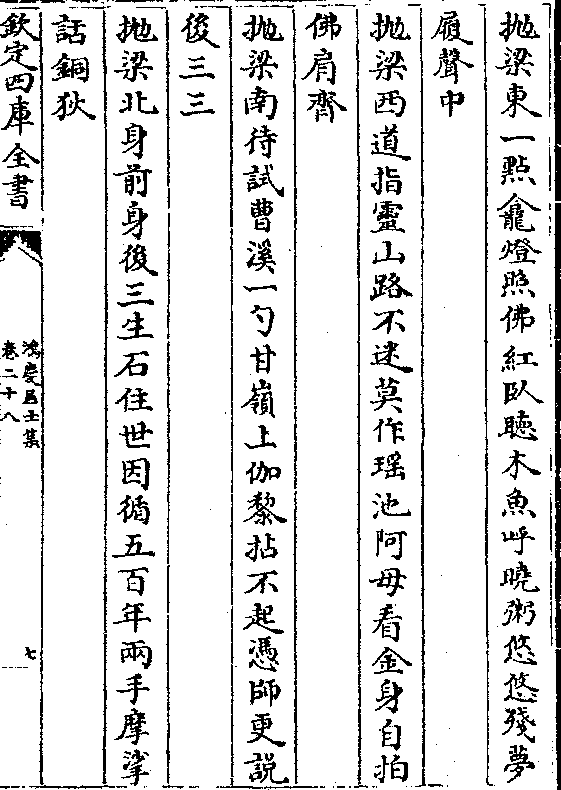 抛梁東一㸃龕燈照佛紅臥聴木魚呼曉粥悠悠殘夢
履聲中
抛梁西道指靈山路不迷莫作瑶池阿母看金身自拍
佛肩齊
抛梁南待試曹溪一勺甘嶺上伽黎拈不起憑師更説
後三三
抛梁北身前身後三生石住世因循五百年兩手摩挲
話銅狄
欽定四庫全書
鴻慶居士集
卷二十八
七